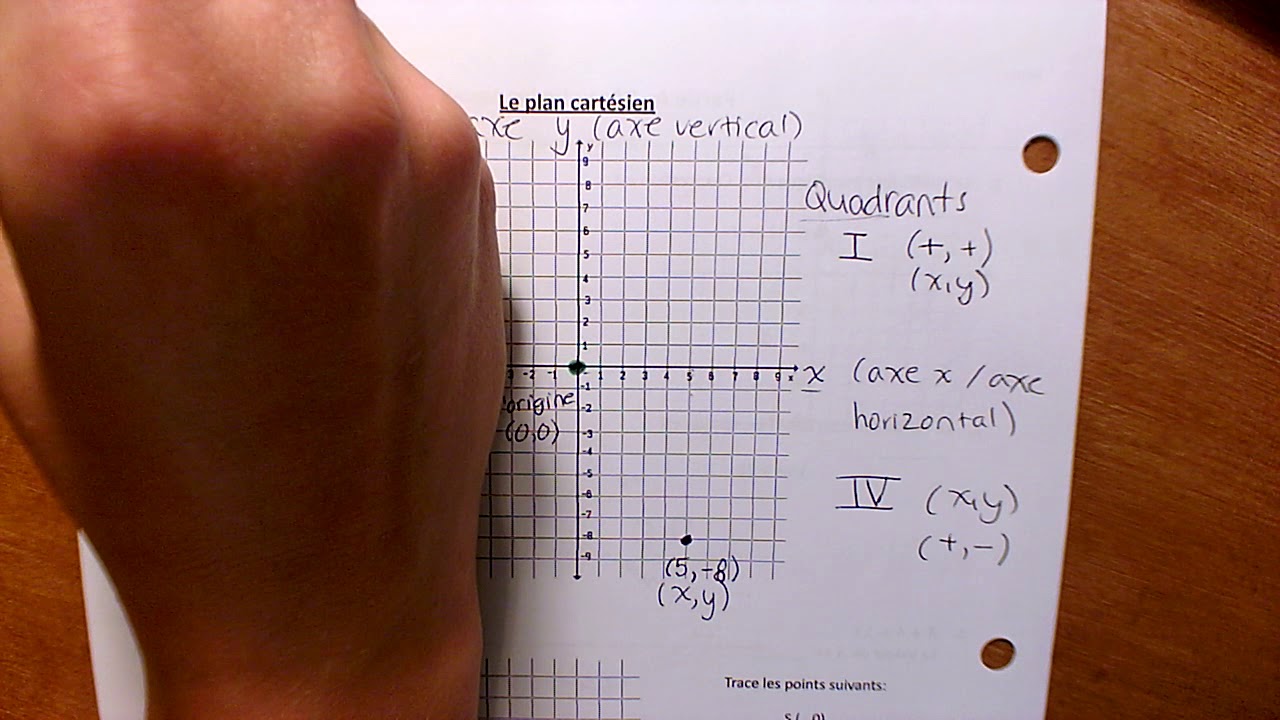 Le plan cartésien
axe y (axe vertical)
y
9
8
7
6
5
4
3
2
1
-2 -1 1 2 3 4 5 6 7 8 9 x
-1
-2
-3
-4
-5
-6
-7
-8
-9
origine
(0,0)
(5,-8)
(x,y)
Quadrants
I (+,+)
(x,y)
x (axe x / axe
horizontal)
IV (x,y)
(+,-)
Trace les points suivants: